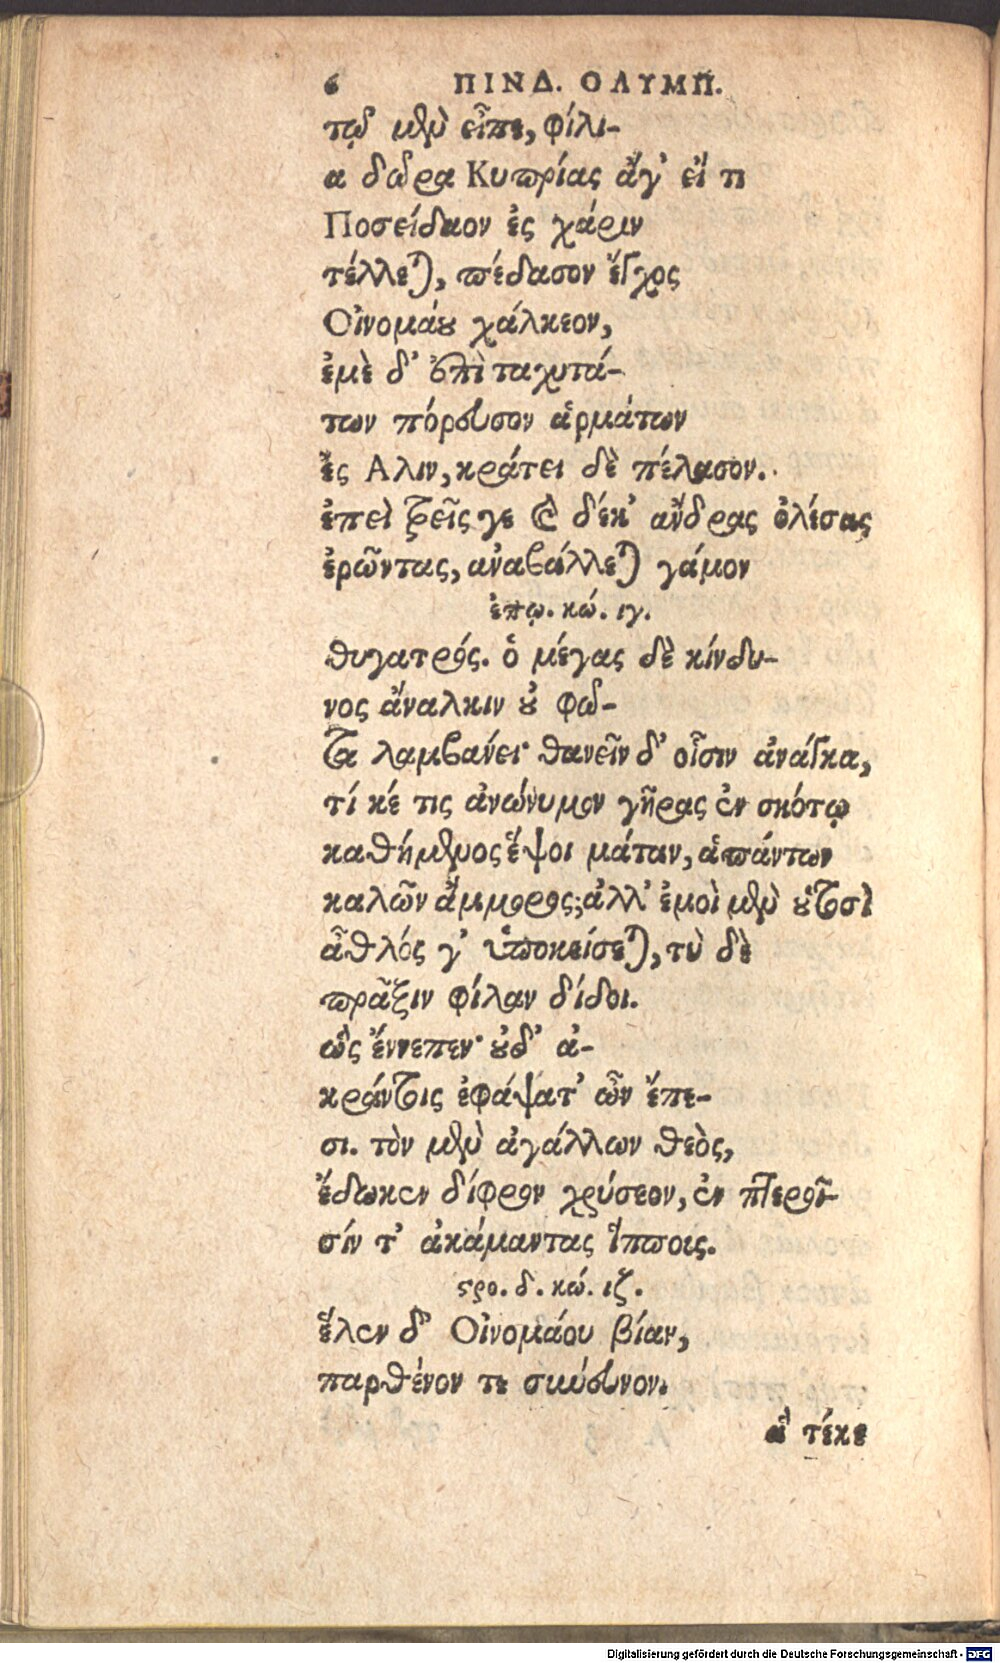 6 ΠΙΝΔ. ΟΛΥΜΠ.
τῷ μὲν εἶπε, φίλι-
α δῶρα Κυπρίας ἄγ' εἴ τι
Ποσείδαον ἐς χάριν
τέλλεται, πέδασον ἔγχος
Οἰνομάου χάλκεον,
ἐμὲ δ' ἐπὶ ταχυτά-
των πόρευσον ἁρμάτων
ἐς Αλιν, κράτει δὲ πέλασον.
ἐπεὶ τρεῖς γε καὶ δέκ' ἄνδρας ὀλέσας
ἐρῶντας, ἀναβάλλεται γάμον
ἐπῳ. κώ. ιγ.
θυγατρός. ὁ μέγας δὲ κίνδυ-
νος ἄναλκιν οὐ φῶ-
τα λαμβάνει· θανεῖν δ' οἷσιν ἀνάγκα,
τί κέ τις ἀνώνυμον γῆρας ἐν σκότῳ
καθήμενος ἕψοι μάταν, ἁπάντων
καλῶν ἄμμορος; ἀλλ' ἐμοὶ μὲν οὗτοσὶ
ἆθλός γ' ὑποκείσεται, τὺ δὲ
πρᾶξιν φίλαν δίδοι.
ὣς ἔννεπεν· οὐδ' ἀ-
κράντοις ἐφάψατ' ὦν ἔπε-
σι. τὸν μὲν ἀγάλλων θεὸς,
ἔδωκεν δίφρον χρύσεον, ἐν πτεροῖ-
σίν τ' ἀκάμαντας ἵπποις.
στρο. δ. κώ. ιζ.
ἕλεν δ' Οἰνομάου βίαν,
παρθένον τε σύνευνον.
ἃ τέκε
Digitalisierung gefördert durch die Deutsche Forschungsgemeinschaft - DFG